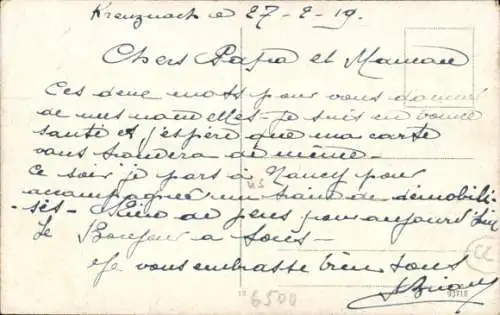 Kreuznach le 27-2-19.
Chers Papa et Maman
Ces deux mots pour vous donner
de mes nouvelles - je suis en bonne
santé et j'espère que ma carte
vous trouvera de même -
Ce soir je pars à Nancy pour
accompagner un train de démobili-
sés - Rien de plus pour aujourd'hui
Le Bonjour à tous -
Je vous embrasse bien tous
45
6500
CL
93718